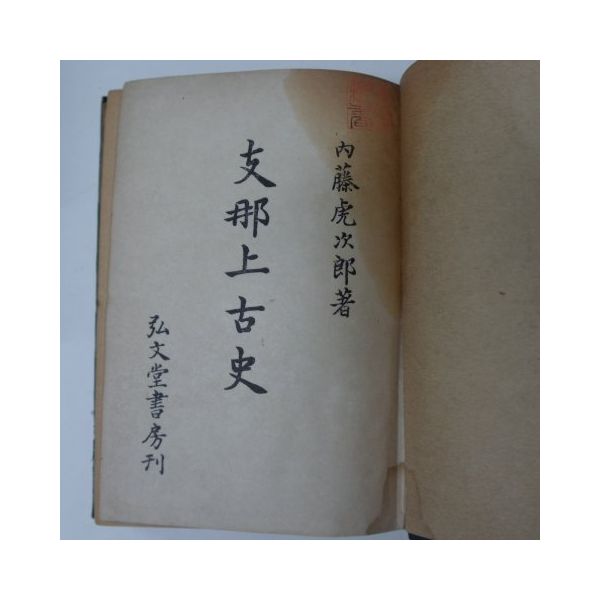 内藤虎次郎著
支那上古史
弘文堂書房刊